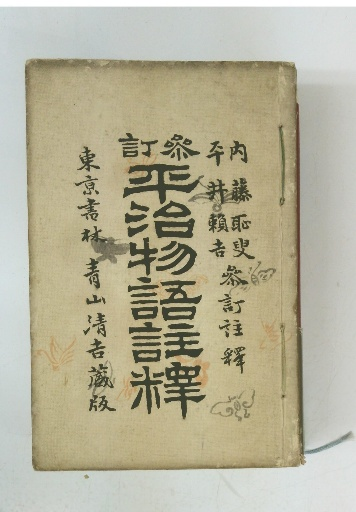 内藤耻叟
平井頼吉
参訂註釋
参訂
平治物語註釋
東京書林 青山清吉藏版